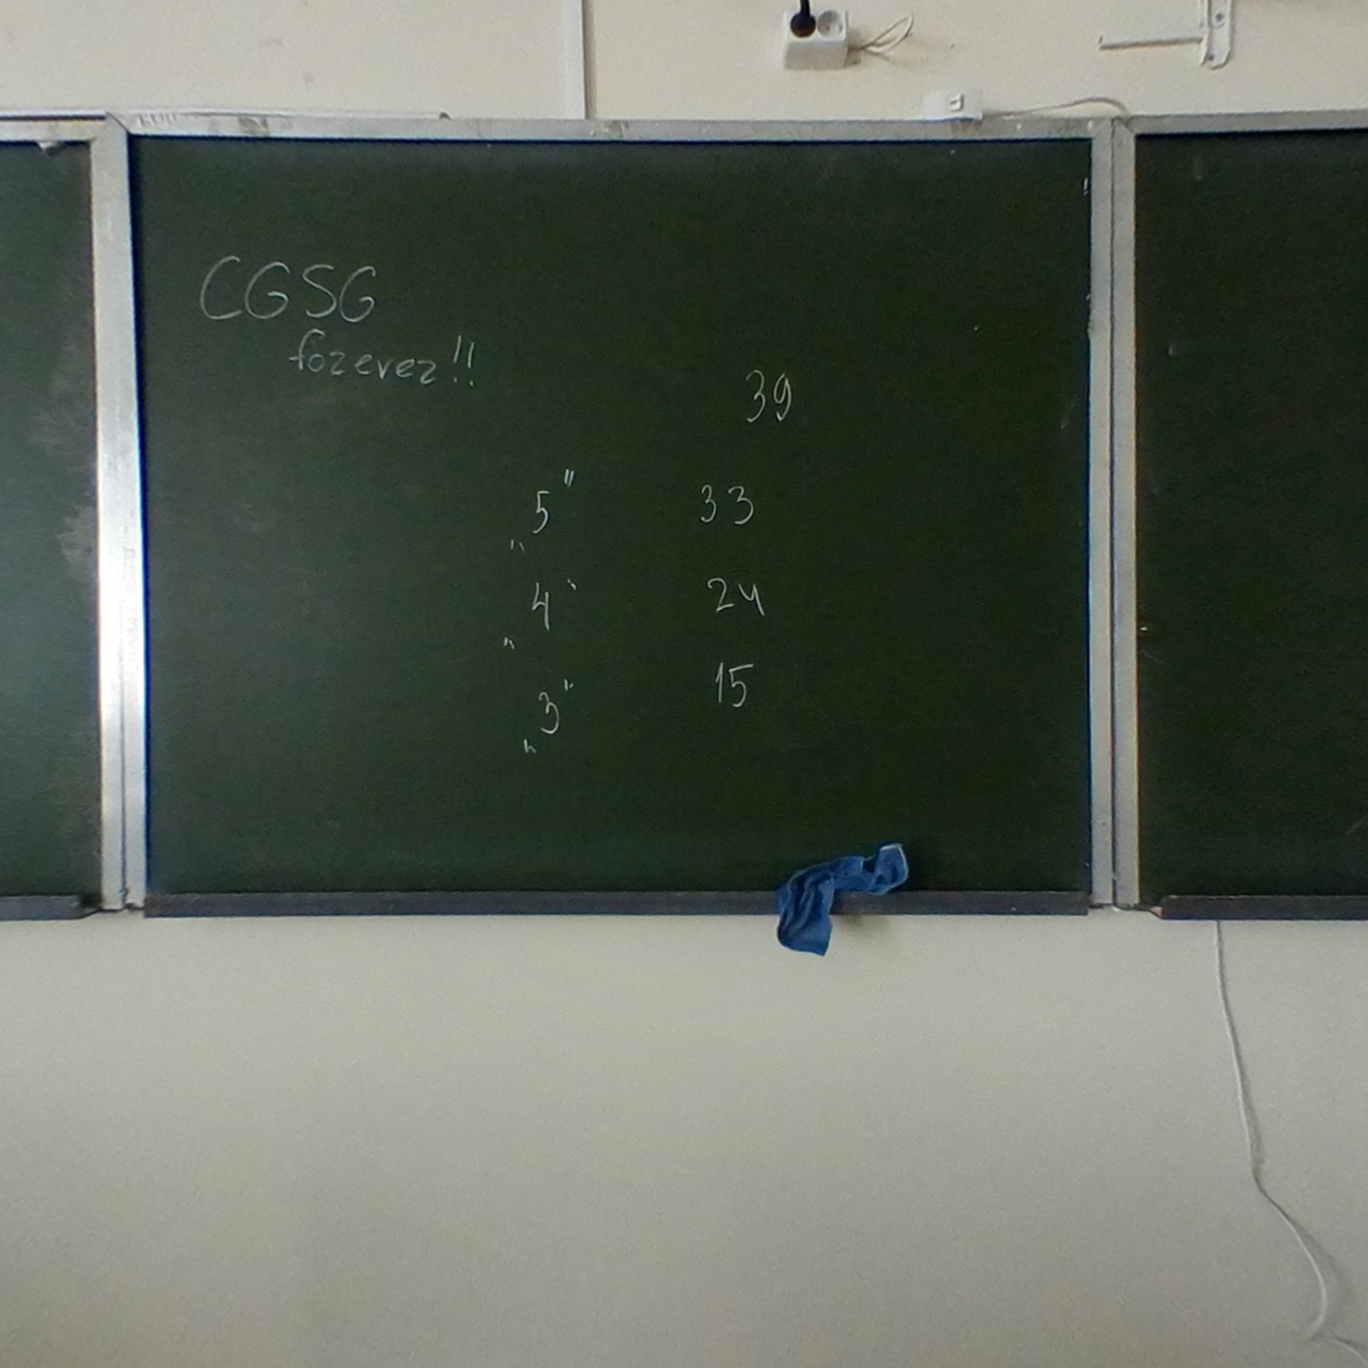 CGSG
forever!!
39
„5" 33
„4" 24
„3" 15